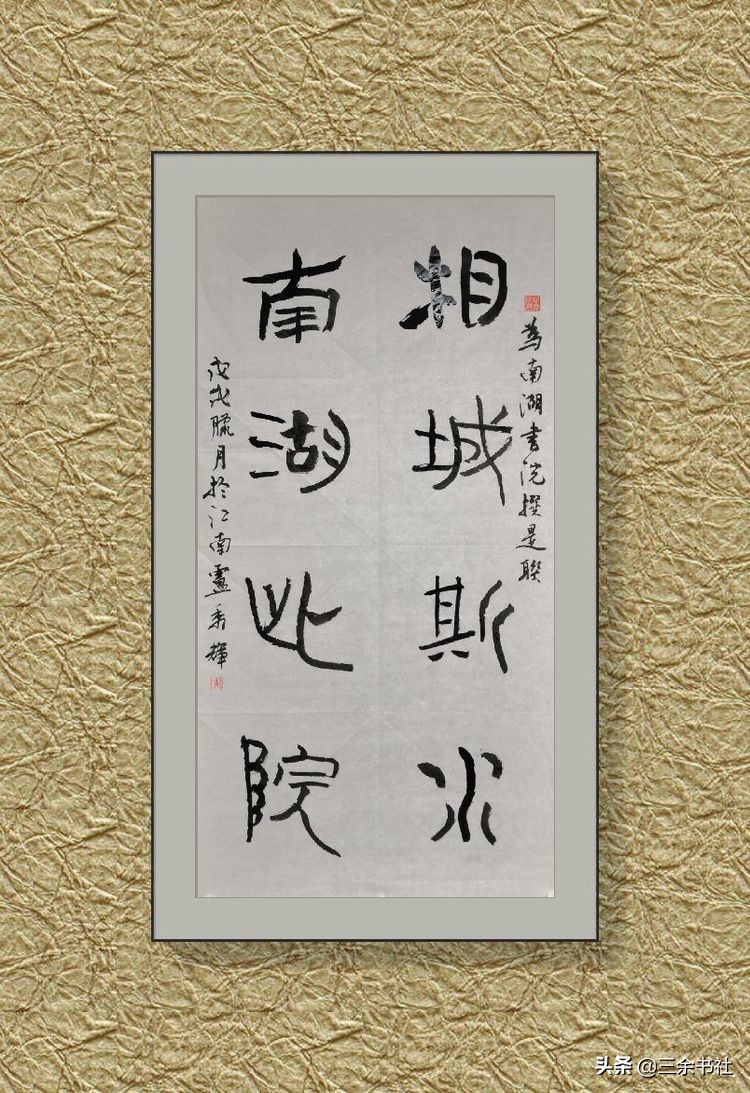 為南湖書院撰是聯
相城斯水
南湖此院
戊戌臘月於江南盧秀輝
头条 @三余书社